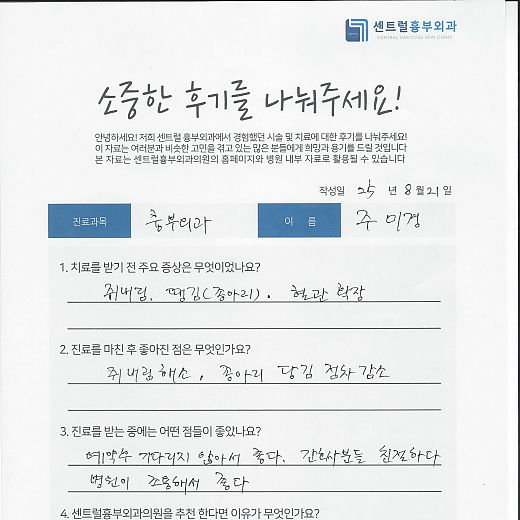 센트럴흉부외과
CENTRAL VARICOSE VEIN CLINIC
소중한 후기를 나눠주세요!
안녕하세요! 저희 센트럴 흉부외과에서 경험했던 시술 및 치료에 대한 후기를 나눠주세요!
이 자료는 여러분과 비슷한 고민을 겪고 있는 많은 분들에게 희망과 용기를 드릴 것입니다!
본 자료는 센트럴흉부외과의원의 홈페이지와 병원 내부 자료로 활용될 수 있습니다
작성일 25 년 8 월 21 일
진료과목 흉부외과 이 름 주미경
1. 치료를 받기 전 주요 증상은 무엇이었나요?
쥐내림, 땡김(종아리). 혈관 확장
2. 진료를 마친 후 좋아진 점은 무엇인가요?
쥐내림 해소, 종아리 당김 점차 감소
3. 진료를 받는 중에는 어떤 점들이 좋았나요?
예약후 기다리지 않아서 좋다. 간호사분들 친절하다
병원이 조용해서 좋다
4. 센트럴흉부외과의원을 추천 한다면 이유가 무엇인가요?